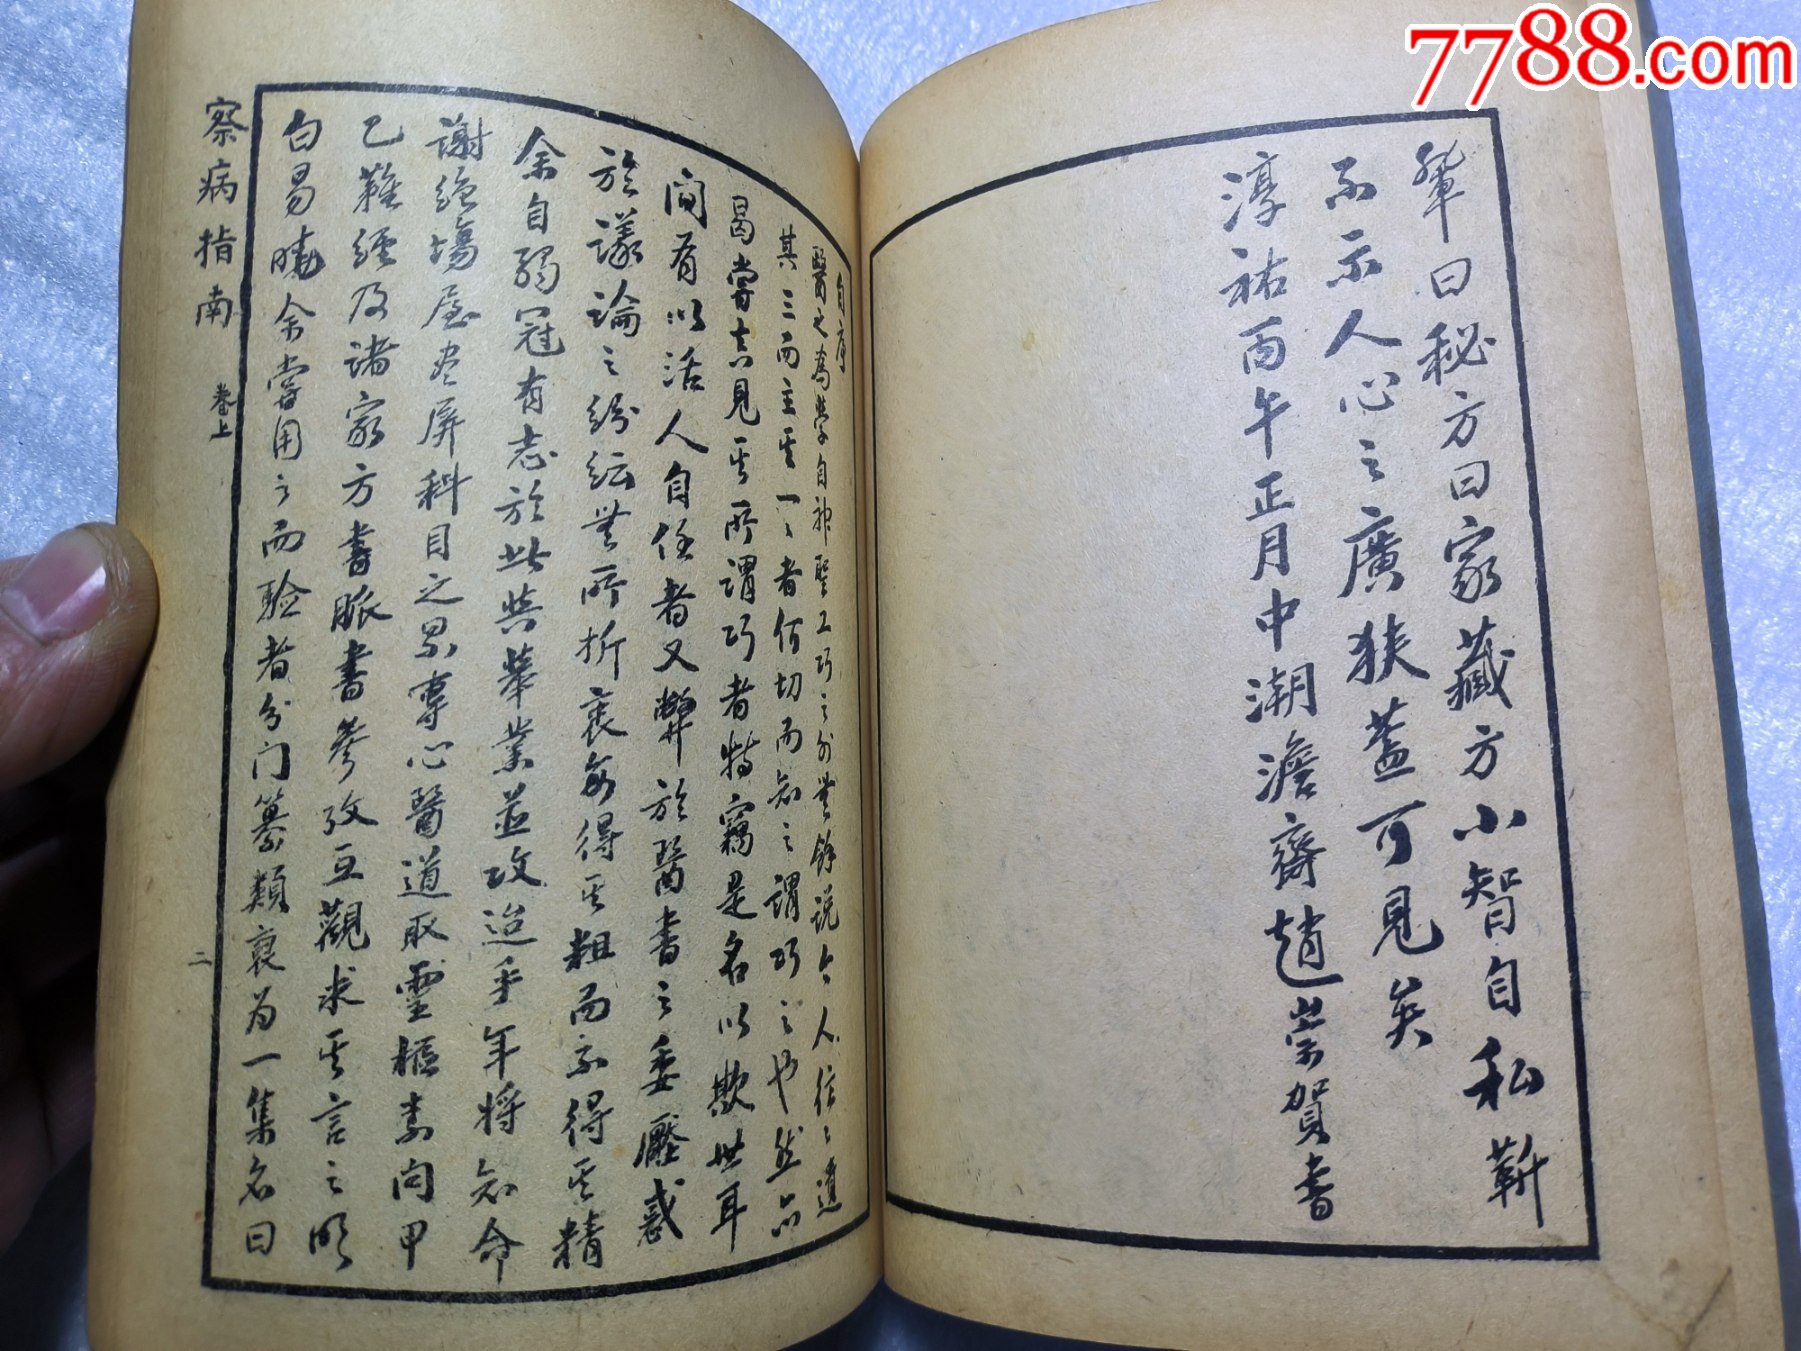 7788.com
輩曰秘方曰家藏方小智自私靳
不示人心之廣狹蓋可見矣
淳祐丙午正月中潮澹齋趙崇賀書
自序
醫之為學自神聖工巧之外無餘說今人往〻遺
其三而主其一〻者何切而知之謂巧之也然亦
曷嘗真見其所謂巧者特竊是名以欺世耳
间有以活人自任者又弊於醫書之委壓惑
於議論之紛紜無所折衷每得其粗而不得其精
余自弱冠有志於此與舉業並攻迨乎年将知命
謝绝場屋尽屏科目之累專心醫道取靈樞素问甲
乙難經及诸家方書脈書參攷互觀求其言之明
白易曉余嘗用之而驗者分门纂類裒为一集名曰
察病指南 卷上 二